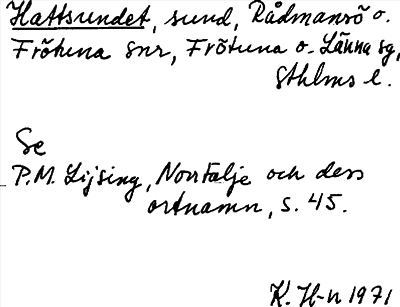 Hattsundet, sund, Rådmansö o.
Frötuna snr, Frötuna o. Länna sg,
Sthlms l.
Se
P.M. Lijsing, Norrtälje och dess
ortnamn, s. 45.
K. H-n 1971